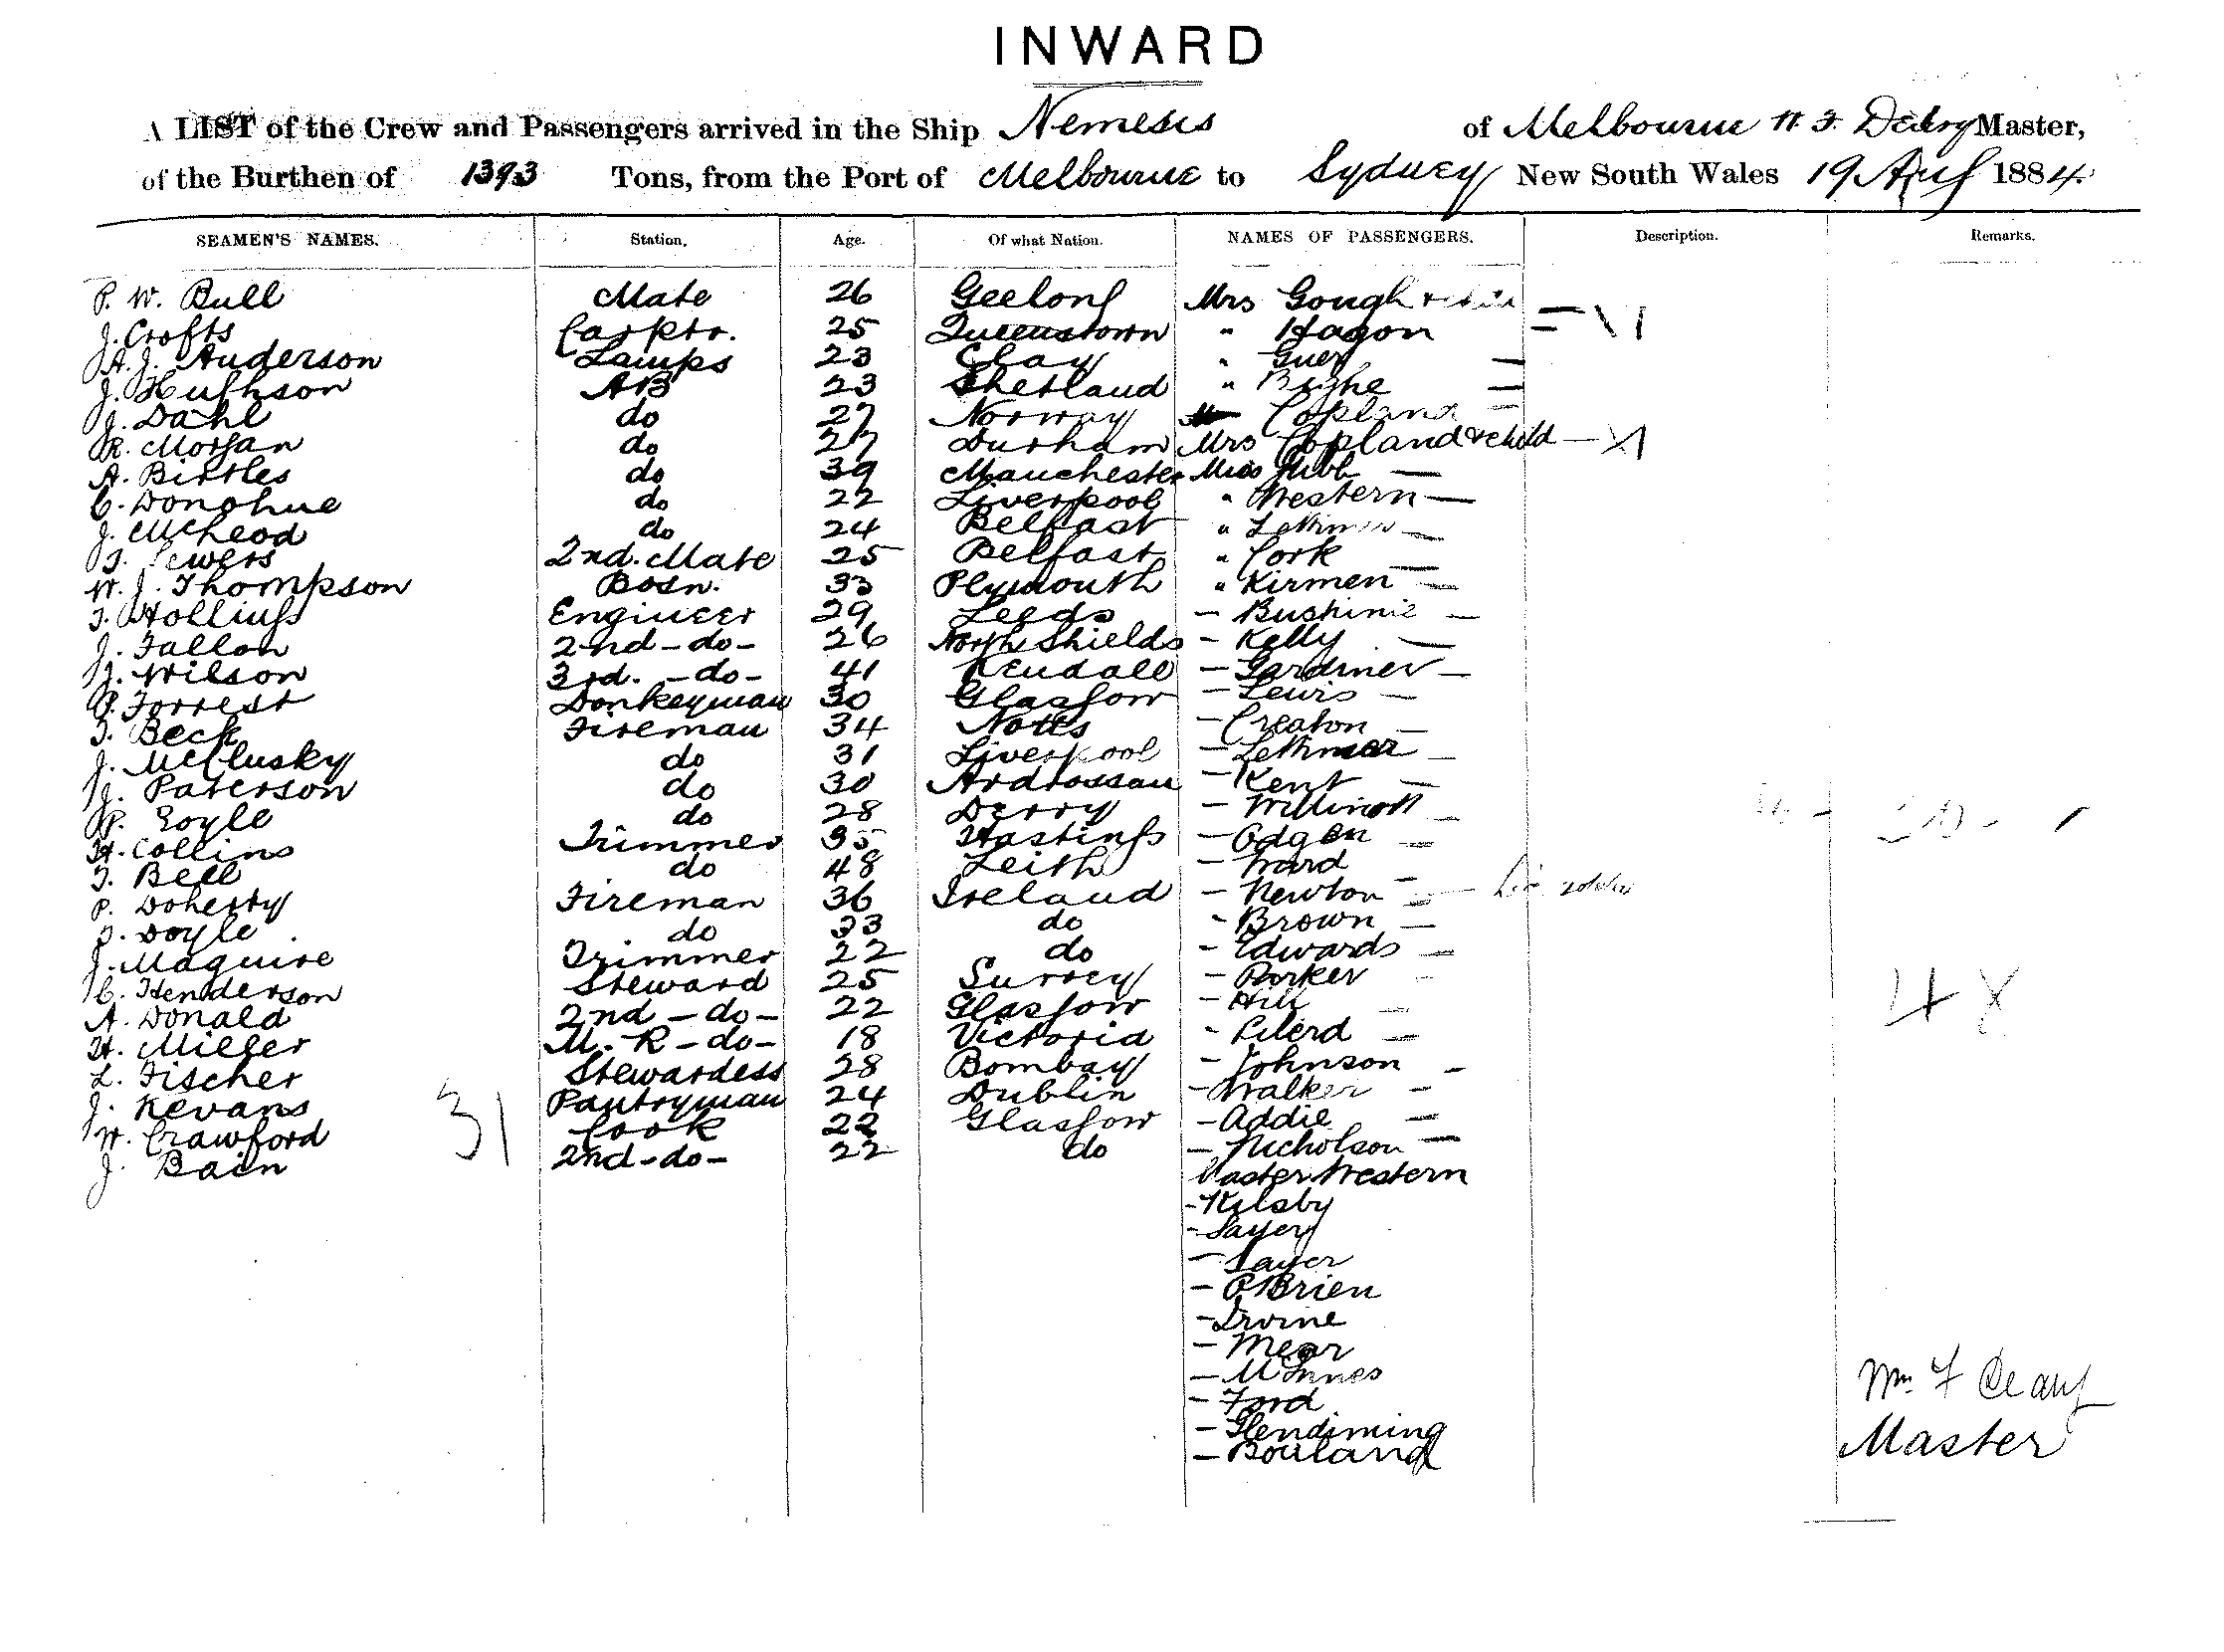 INWARD
A LIST of the Crew and Passengers arrived in the Ship Nemesis of Melbourne Master,
of the Burthen of 1393 Tons, from the Port of Melbourne to Sydney New South Wales 19 Aug 1884.
SEAMEN'S NAMES. Station. Age. Of what Nation. NAMES OF PASSENGERS. Description. Remarks.
P. W. Bull Mate 26 Geelong Mrs Gough
J. Crofts Carptr. 25 Queenstown " Hagon
A. J. Anderson Lamps 23 "
J. Hughson AB 23 Shetland "
J. Dahl do 27 Norway Copland
R. Morgan do 27 Durham Mrs Copland & child
A. Birtles do 39 Manchester Miss
C. Donohue do 22 Liverpool " Western
J. McLeod do 24 Belfast "
2nd. Mate 25 Belfast " Cork
W. J. Thompson Bosn. 33 Plymouth " Kirmen
T. Hollings Engineer 29 Leeds -
J. Fallon 2nd - do - 26 North Shields - Kelly
J. Wilson 3rd. - do - 41 Kendall - Gardiner
P. Forrest Donkeyman 30 Glasgow - Lewis
T. Beck Fireman 34 Notts - Creaton
J. McClusky do 31 Liverpool -
J. Paterson do 30 Ardrossan - Kent
P. do 28 Derry -
H. Collins Trimmer 35 Hastings - Odgen
T. Bell do 48 Leith - Ward
P. Doherty Fireman 36 Ireland - Newton
Doyle do 33 do - Brown
J. Maguire Trimmer 22 do - Edwards
C. Henderson Steward 25 Surrey - Parker
A. Donald 2nd - do - 22 Glasgow - Hill
H. Miller M. R - do - 18 Victoria -
L. Fischer Stewardess 28 Bombay - Johnson
J. Kevans Pantryman 24 Dublin - Walker
W. Crawford Cook 22 Glasgow - Addie
J. Bain 2nd - do - 22 do - Nicholson
31
Master Western
- Kilsby
- Sayer
- Sayer
- O'Brien
- Irvine
- Mear
- McInnes
- Ford
- Glendiming
- Bouland
48
Master